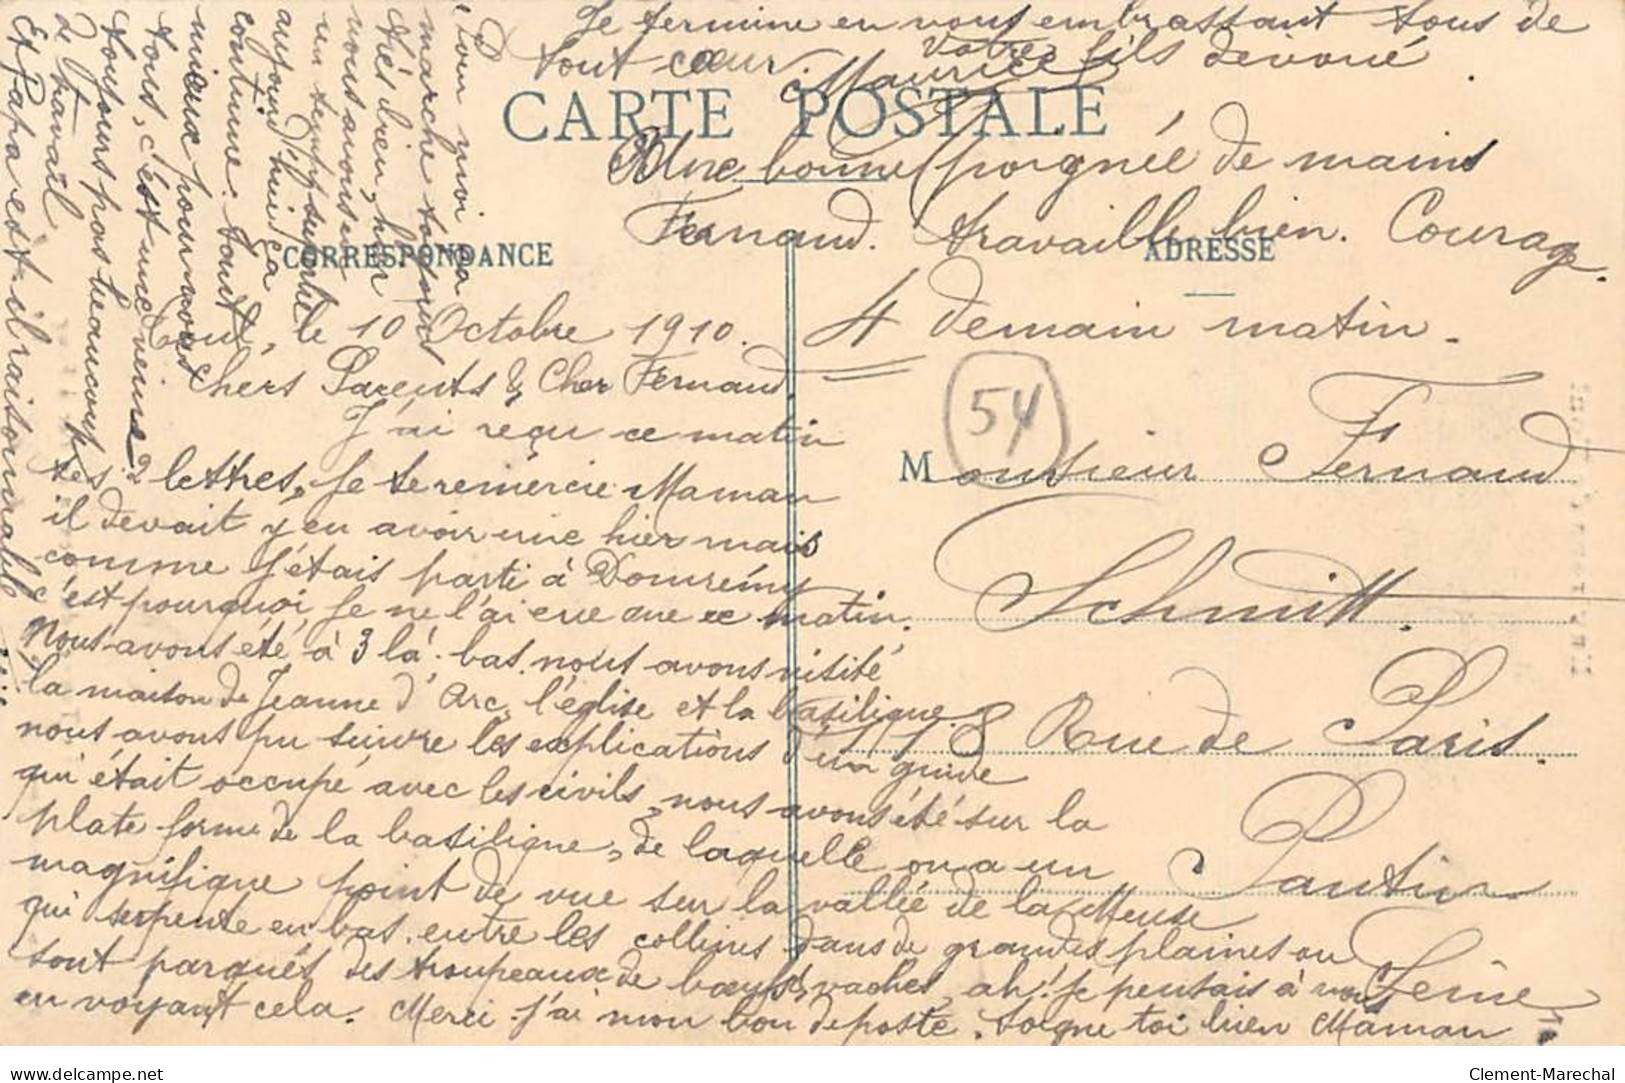 CARTE POSTALE
CORRESPONDANCE
ADRESSE
Toul, le 10 Octobre 1910.
Chers Parents & Cher Fernand,
J'ai reçu ce matin
tes 2 lettres, je te remercie Maman
il devait y en avoir une hier mais
comme j'étais parti à Domrémy
c'est pourquoi je ne l'ai eue que ce matin.
Nous avons été à 3 là-bas, nous avons visité
la maison de Jeanne d'Arc, l'église et la basilique.
nous avons pu suivre les explications d'un guide
qui était occupé avec les civils, nous avons été sur la
plate forme de la basilique, de laquelle on a un
magnifique point de vue sur la vallée de la Meuse
qui serpente en bas, entre les collines dans de grandes plaines ou
sont parqués des troupeaux de boeufs, vaches, ah! je pensais à vous
en voyant cela. Merci j'ai mon bon de poste. Soigne toi bien Maman
Et Papa est-il raisonnable
de travail
toujours pas beaucoup
tous, c'est une veine
mieux pour nous
continue. Tout
aujourd'hui ça
un temps superbe
nous avons eu
très bien, hier
marche toujours
Pour moi ça
Je termine en vous embrassant tous de
tout cœur. Votre fils dévoué
Maurice
Une bonne poignée de mains
Fernand. travaille bien. Courage.
4 demain matin.
54
Monsieur Fernand
Schmitt.
118 Rue de Paris.
Pantin
Seine
Clement-Marechal
www.delcampe.net